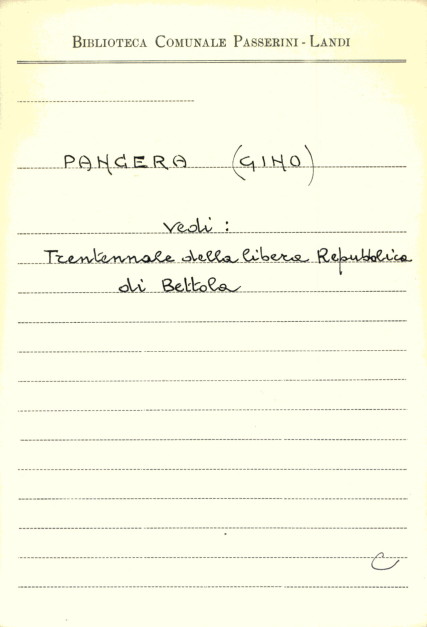 BIBLIOTECA COMUNALE PASSERINI - LANDI
PANCERA (GINO)
vedi :
Trentennale della libera Repubblica
di Bettola
C